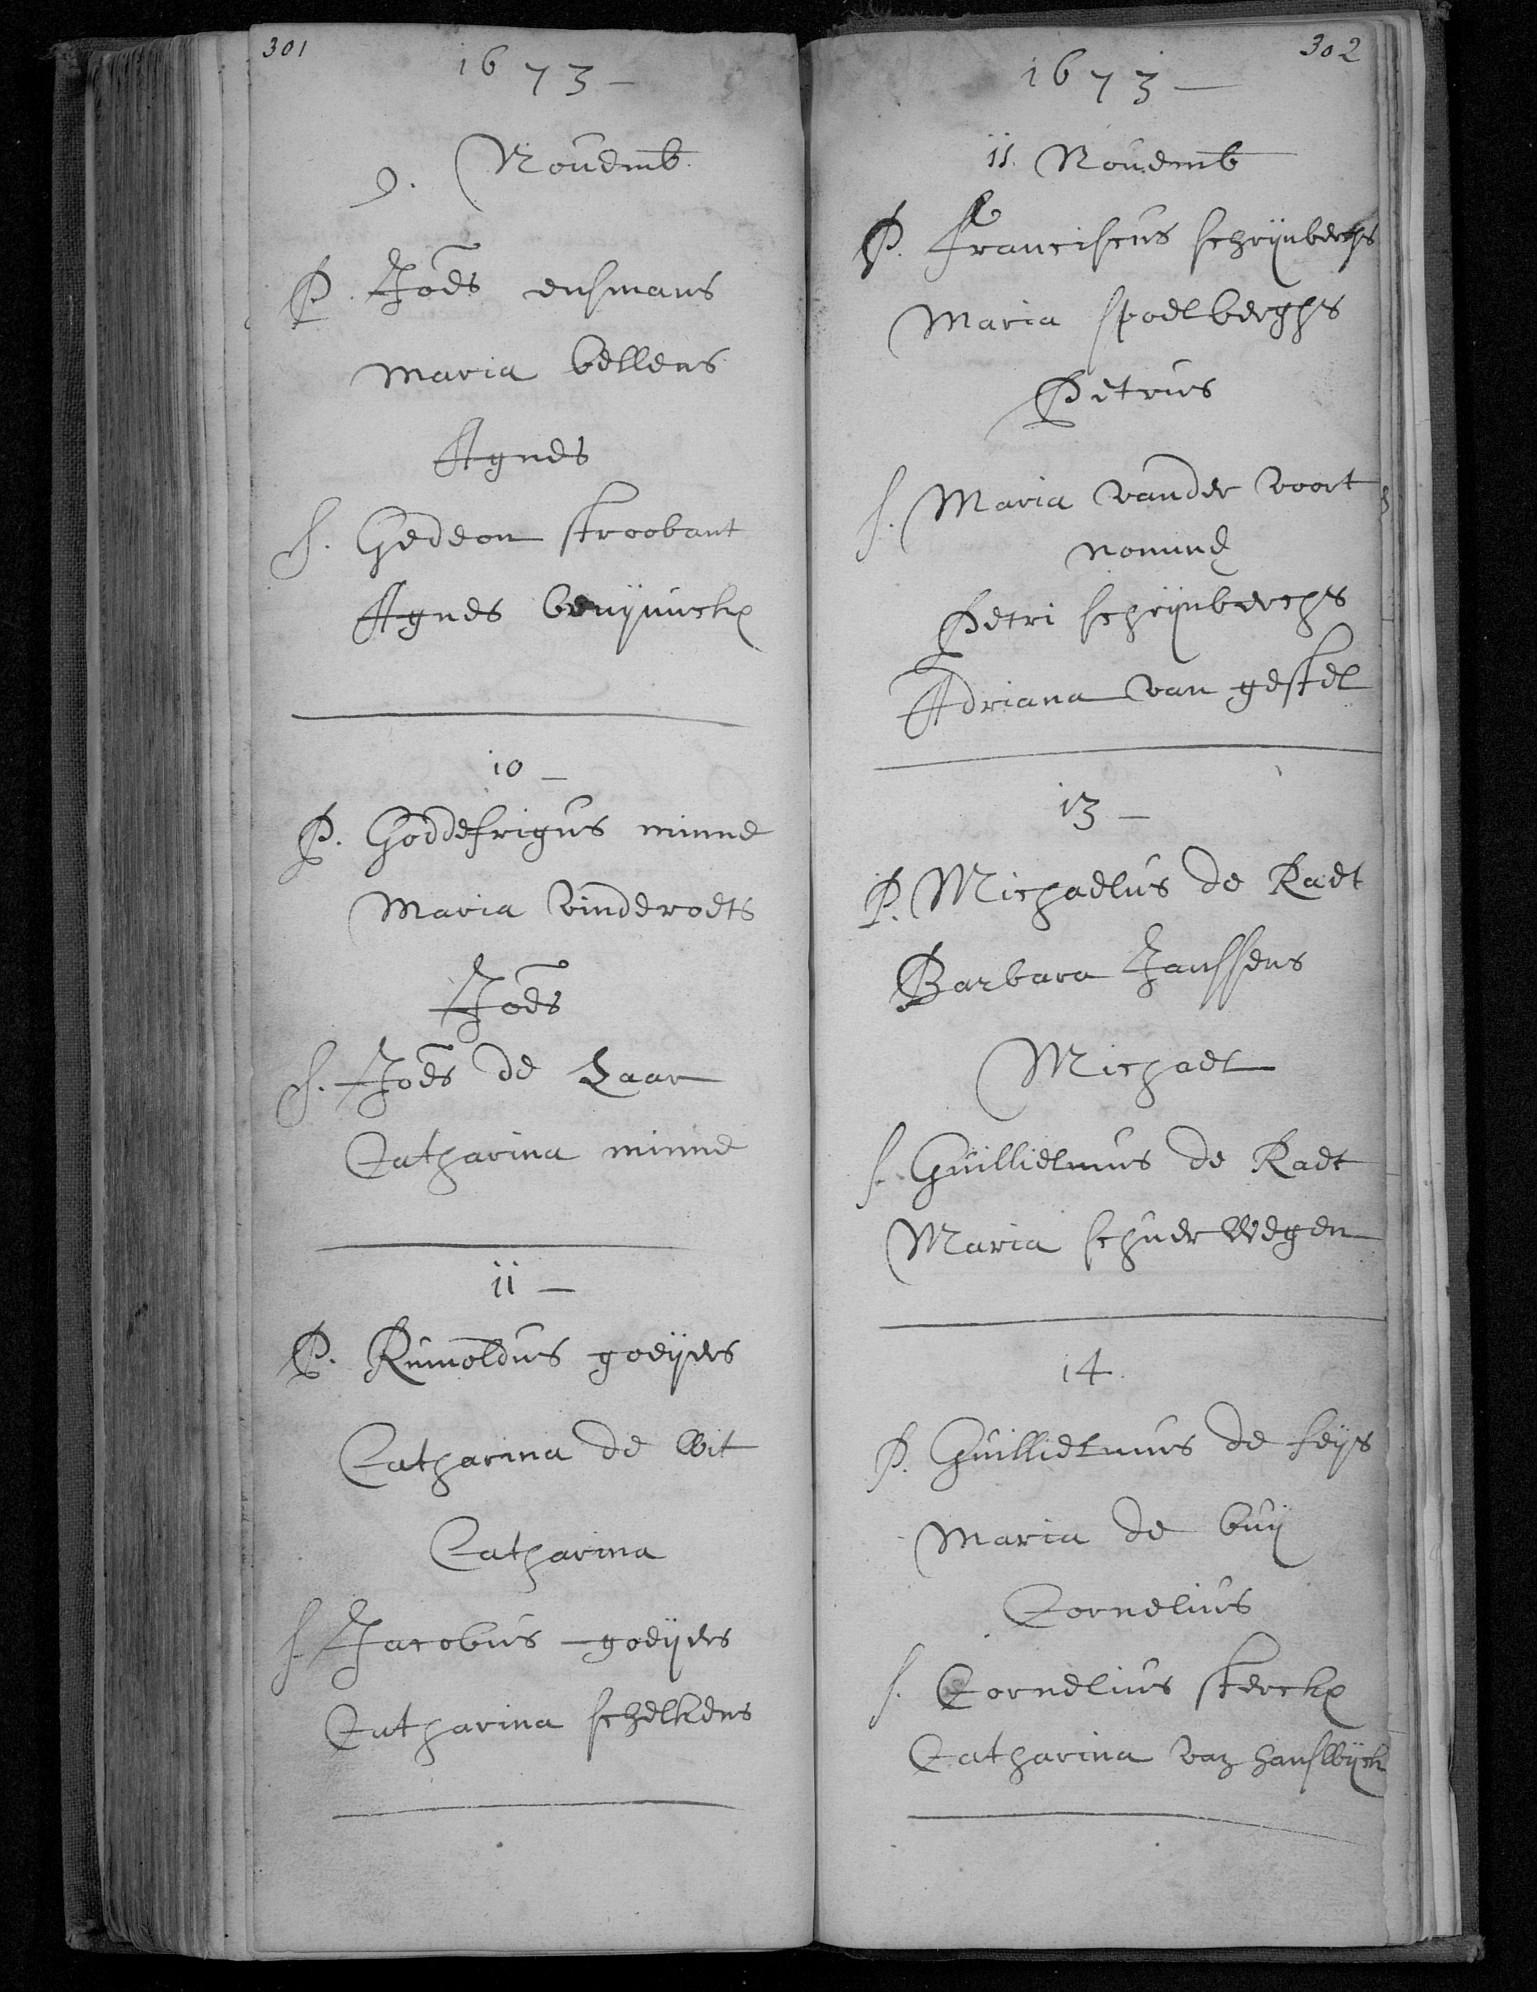 301
1673
9. Nouemb.
P. Joēs ensmans
Maria bellens
Agnes
S. Gedeon stroobant
Agnes bruijninckx
10
P. Goddefrigus minne
Maria vinderoets
Joēs
S. Joēs de Laar
Catharina minne
ii
P. Rumoldus goeijers
Catharina de Wit
Catharina
S. Jacobus goeijers
Catharina schelkens
302
1673
11. Nouemb
P. Franciscus schrijnberchs
Maria spoelberghs
Petrus
S. Maria vander voort
nomine
Petri schrijnberchs
Adriana van gestel
13
P. Michaelus de Raet
Barbara Janssens
Michael
S. Guillielmus de Raet
Maria schuerWegen
14.
P. Guillielmus de keijs
Maria de buij
Cornelius
S. Cornelius sterckx
Catharina van hansWijck